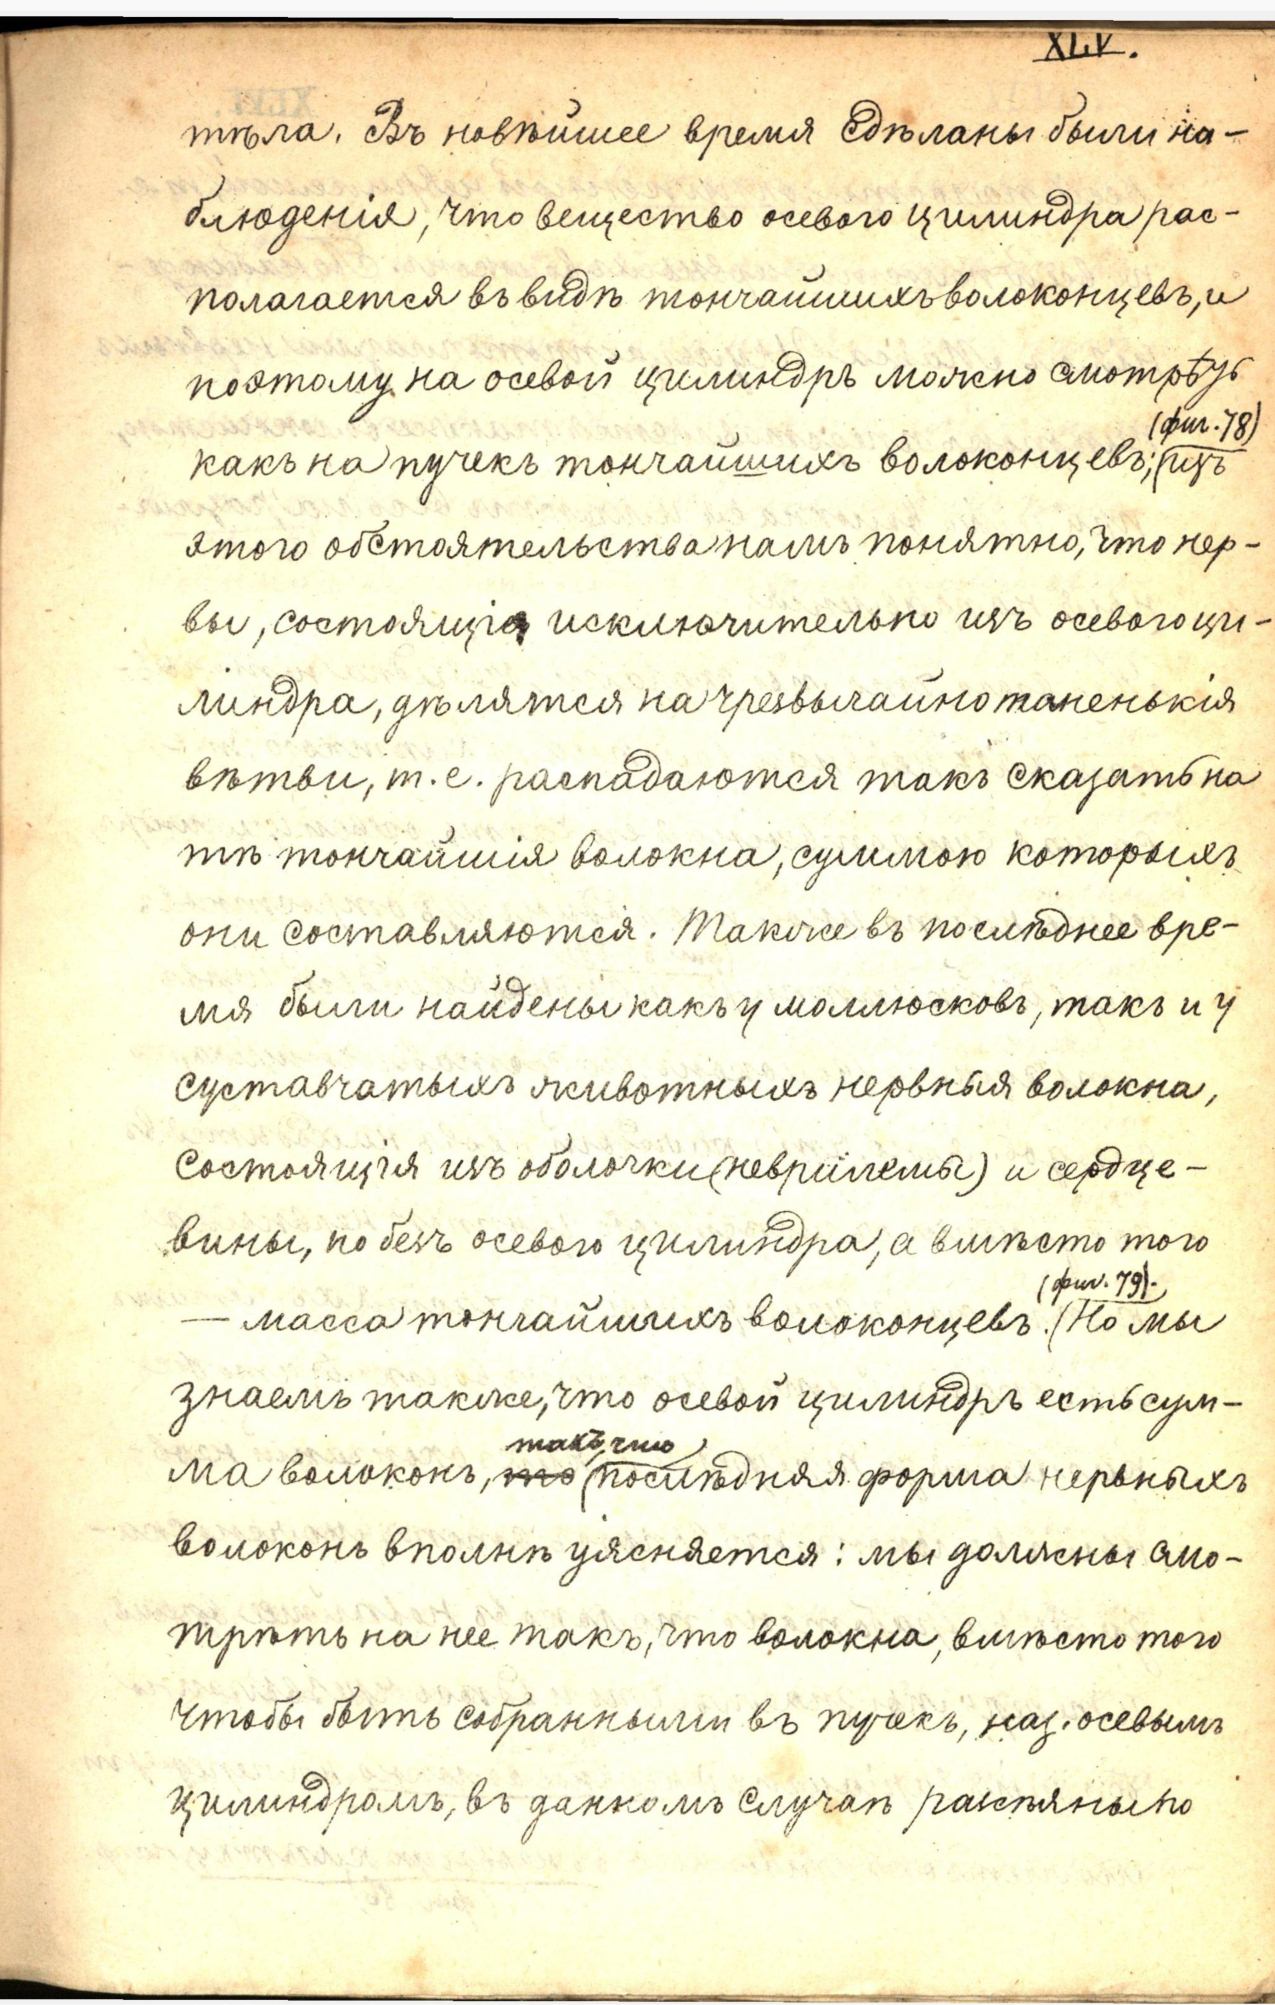 XLV.
тѣла. Въ новѣйшее время сдѣланы были на-
блюденія, что вещество осевого цилиндра рас-
полагается въ видѣ тончайшихъ волоконцевъ, и
поэтому на осевой цилиндръ можно смотрѣть
(фиг. 78)
какъ на пучекъ тончайшихъ волоконцевъ; (изъ
этого обстоятельства намъ понятно, что нер-
вы, состоящіе исключительно изъ осевого ци-
линдра, дѣлятся на чрезвычайно тоненькія
вѣтви, т. е. распадаются такъ сказать на
тѣ тончайшія волокна, суммою которыхъ
они составляются. Также въ послѣднее вре-
мя были найдены какъ у моллюсковъ, такъ и у
суставчатыхъ животныхъ нервныя волокна,
состоящія изъ оболочки (неврилемы) и сердце-
вины, но безъ осевого цилиндра, а вмѣсто того
(фиг. 79).
— масса тончайшихъ волоконцевъ. (Но мы
знаемъ также, что осевой цилиндръ есть сум-
такъ что
ма волоконъ, то (послѣдняя форма нервныхъ
волоконъ вполнѣ уясняется: мы должны смо-
трѣть на нее такъ, что волокна, вмѣсто того
чтобы быть собранными въ пучекъ, наз. осевымъ
цилиндромъ, въ данномъ случаѣ разсѣяны по